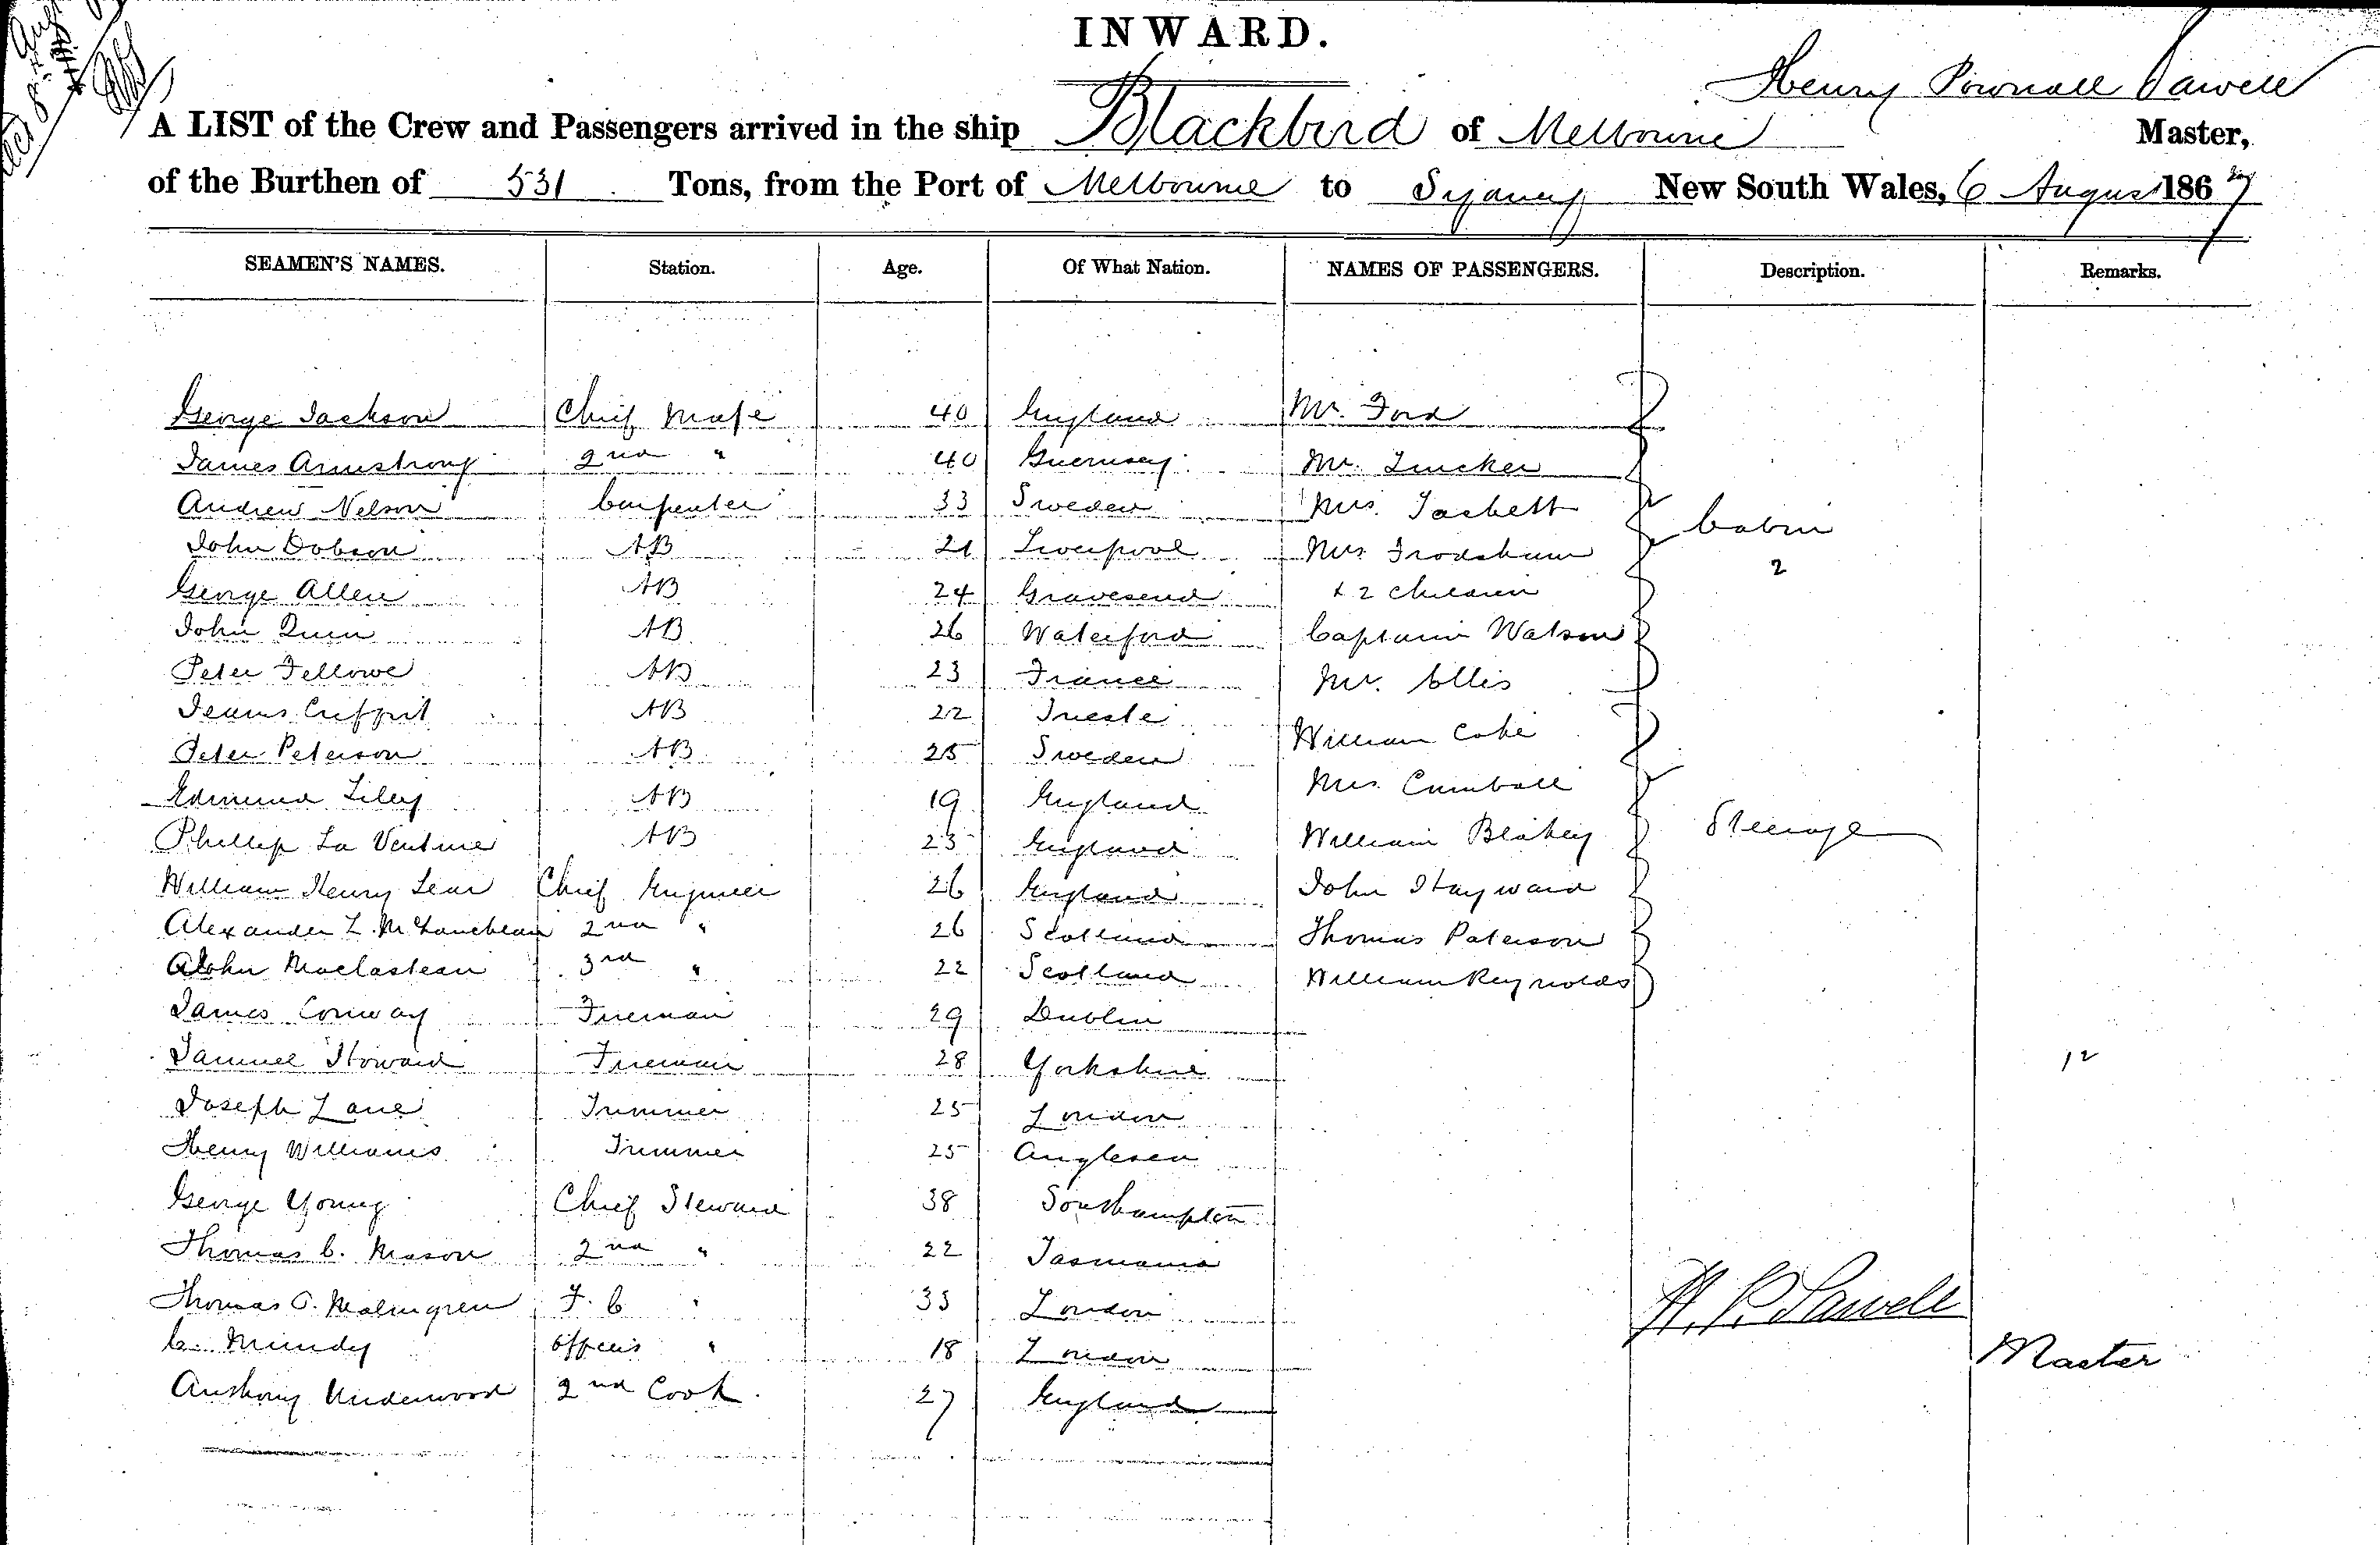 INWARD.
Henry Pownall Sawell
A LIST of the Crew and Passengers arrived in the ship Blackbird of Melbourne Master,
of the Burthen of 531 Tons, from the Port of Melbourne to Sydney New South Wales, 6 August 1867
SEAMEN'S NAMES. Station. Age. Of What Nation. NAMES OF PASSENGERS. Description. Remarks.
George Jackson Chief Mate 40 England Mr. Ford
James Armstrong 2nd " 40 Guernsey Mr.
Andrew Nelson Carpenter 33 Sweden Mrs. Cabin
John Dobson AB 21 Liverpool Mrs Frodsham 2
George Allen AB 24 Gravesend & 2 children
John Quin AB 26 Waterford Captain Watson
Peter Fellowe AB 23 France Mr. Ellis
AB 22 Trieste William
Peter Peterson AB 25 Sweden Mrs.
Edmund Lilley AB 19 England
Phillip La Venture AB 23 England William Blakey Steerage
William Henry Lear Chief Engineer 26 England John Hayward
Alexander L. 2nd " 26 Scotland Thomas Paterson
John 3rd " 22 Scotland William Reynolds
James Conway Fireman 29 Dublin
Samuel Howard Fireman 28 Yorkshire 12
Joseph Lane Trimmer 25 London
Henry Williams Trimmer 25 Anglesea
George Young Chief Steward 38 Southampton
Thomas C. Mason 2nd " 22 Tasmania
Thomas Malmgren F. C " 33 London H. P. Sawell
C. Mundy Officers " 18 London Master
Anthony Underwood 2nd Cook 27 England